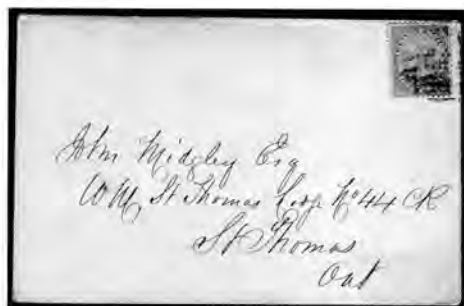 John Midgley Esq
W M, St Thomas Lodge No 44 CR
St Thomas
Ont